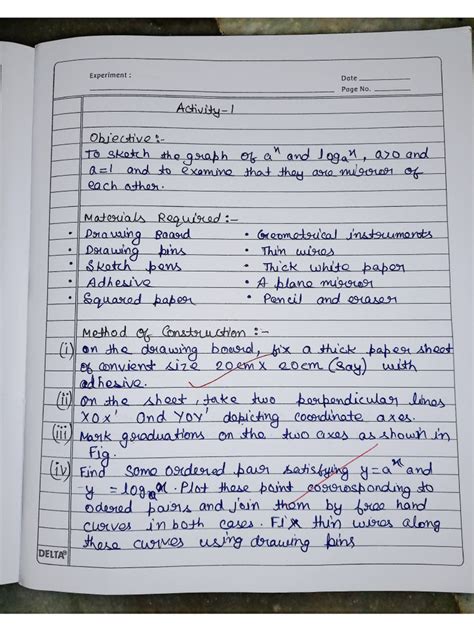 Experiment :
Date
Page No.
Activity-1
Objective :-
To sketch the graph of aˣ and logₐx, a>0 and
a=1 and to examine that they are mirror of
each other.
Materials Required :-
• Drawing Board • Geometrical instruments
• Drawing pins • Thin wires
• Sketch pens • Thick white paper
• Adhesive • A plane mirror
• Squared paper • Pencil and eraser
Method of Construction :-
(i) On the drawing board, fix a thick paper sheet
of convient size 20cm x 20cm (say) with
adhesive.
(ii) On the sheet, take two perpendicular lines
XOX' and YOY' depicting coordinate axes.
(iii) Mark graduations on the two axes as shown in
Fig.
(iv) Find some ordered pair satisfying y=aˣ and
y = logₐx. Plot these point corresponding to
odered pairs and join them by free hand
curves in both cases. Fix thin wires along
these curves using drawing pins
DELTA